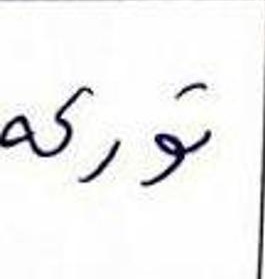 تورکە